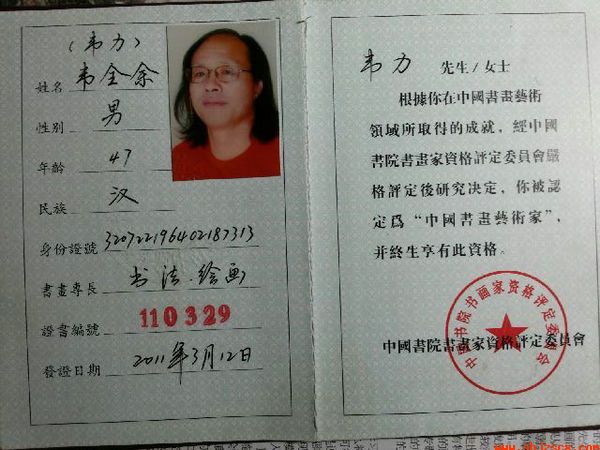 （韦力）
姓名 韦全余
性别 男
年龄 47
民族 汉
身份證號 320722196402187313
書畫專長 书法.绘画
證書編號 110329
發證日期 2011年3月12日
韦力 先生/女士
根據你在中國書畫藝術
領域所取得的成就，經中國
書院書畫家資格評定委員會嚴
格評定後研究决定，你被認
定爲“中國書畫藝術家”，
并終生享有此資格。
中国书院书画家资格评定委员会
中國書院書畫家資格評定委員會